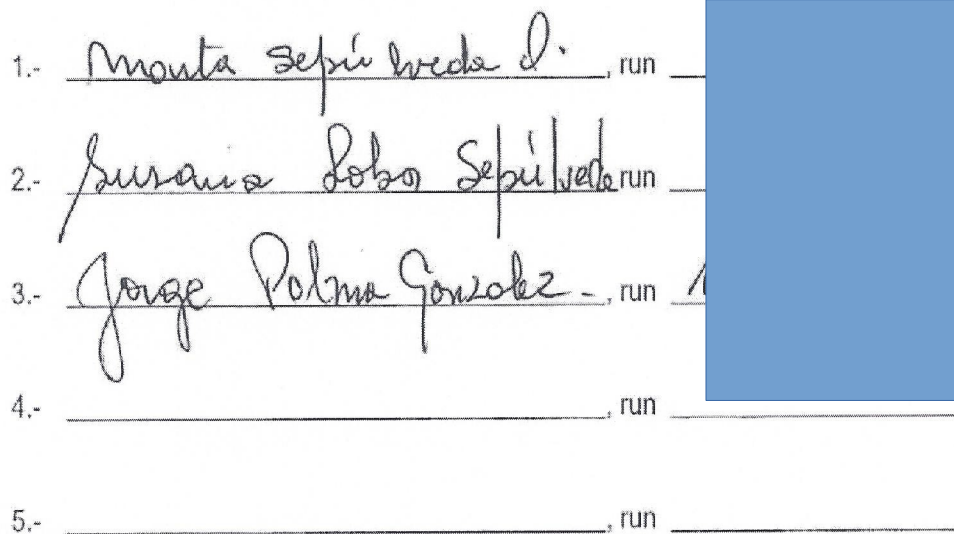 1.- Monta Sepúlveda D. , run
2.- Susana Lobos Sepúlveda run
3.- Jorge Palma Gonzalez - , run
4.- , run
5.- , run